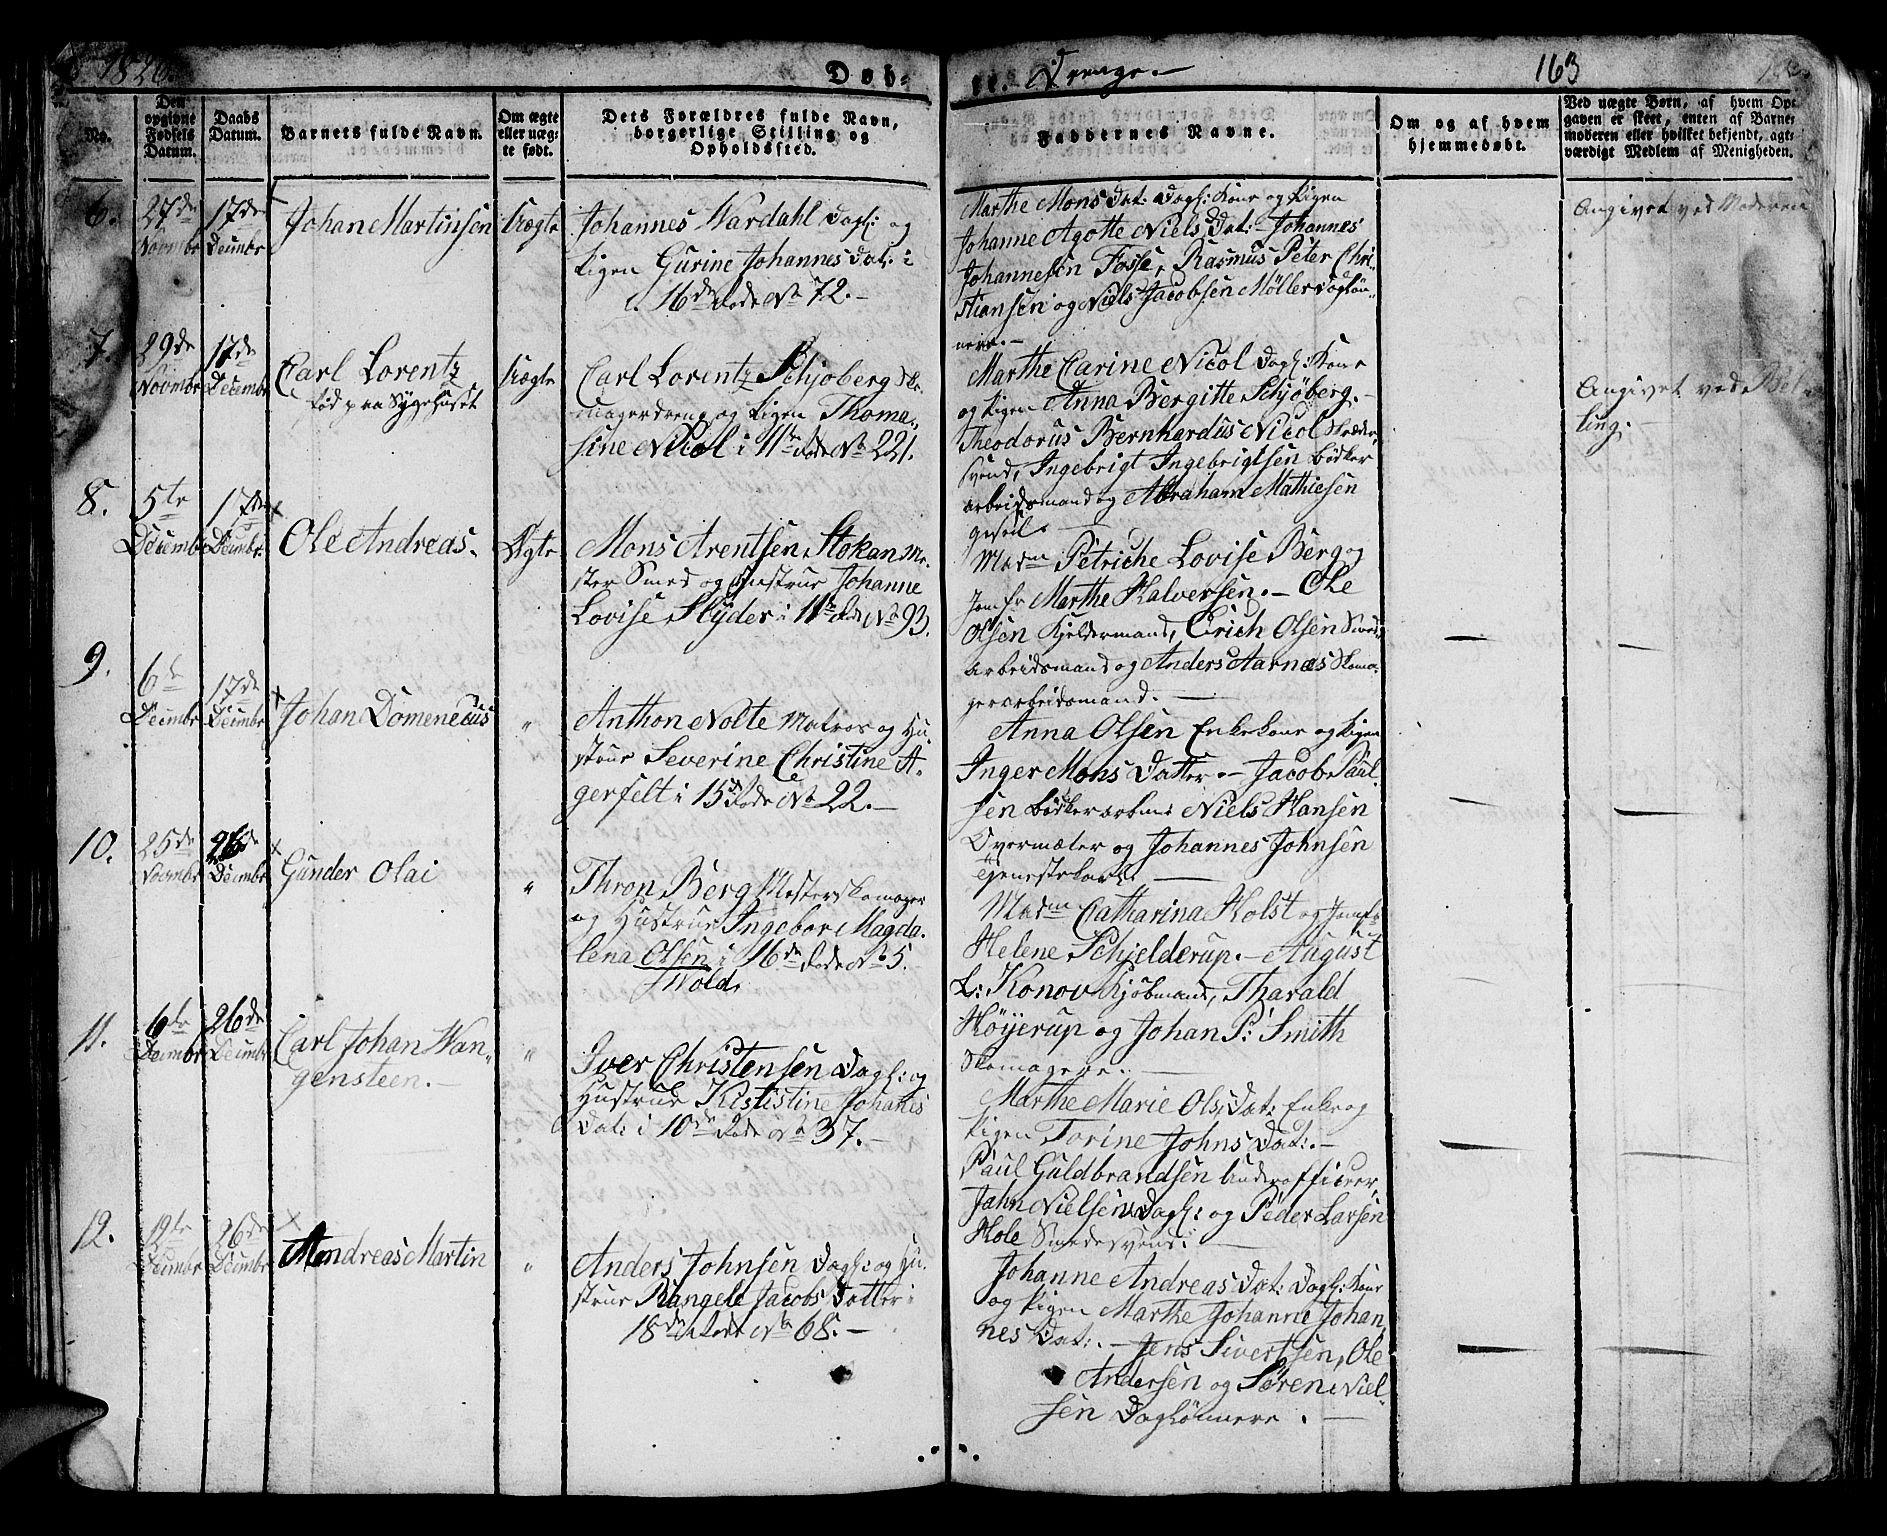 1826.
Døb-
te.
Drenge.
163
No.
Den opgivne Fødsels Datum.
Daabs Datum.
Barnets fulde Navn.
Om ægte eller uægte født.
Dets Forældres fulde Navn, borgerlige Stilling og Opholdssted.
Faddernes Navne.
Om og af hvem hjemmedøbt.
Ved uægte Børn, af hvem Opgaven er skeet, enten af Barnemoderen eller hvilket bekjendt, agtværdigt Medlem af Menigheden.
6.
27de Novembr
17de Decembr
Johan Martinsen
Uægte
Johannes Wardahl Dagl: og
Pigen Gurine Johannes Dat: i
16de Rode No 72.
Marthe Mons Dat: Dagl: Kone og Pigen
Johanne Agotte Niels Dat: - Johannes
Johannesen Fosse, Rasmus Peter Chri-
stiansen og Niels Jacobsen Møller Dagløn-
nere.
Angivet ved Moderen
7.
29de Novembr
17de Decembr
Carl Lorentz
Fød paa Sygehuset
Uægte
Carl Lorentz Schjøberg Sko-
magerdreng og Pigen Thoma-
sine Nicol i 11te Rode No 221.
Marthe Carine Nicol Dagl: Kone
og Pigen Anna Bergitte Schjøberg. -
Theodorus Bernhardus Nicol Skræder
Svend, Ingebrigt Ingebrigtsen Bødker
arbeidsmand og Abraham Mathiesen
Gesell.
Angivet ved
8.
5te Decembr
17de Decembr
Ole Andreas.
Ægte
Mons Arentsen Stokan Me-
ster Smed og Hustrue Johanne
Lovise Slyder i 11te Rode No 93.
Madm Petriche Lovise Berg og
Jomfr Marthe Halversen. - Ole
Olsen Kjeldermand, Erich Olsen Smed
arbeidsmand og Anders Aarnæs Skoma-
gerarbeidsmand.
9.
6te Decembr
17de Decembr
Johan Domenecus
"
Anthon Nolte Matros og Hu-
strue Severine Christine A-
gerfelt i 15de Rode No 22.
Anna Olsen Enkekone og Pigen
Inger Mons Datter. - Jacob Paul-
sen Bødkerarbm: Niels Hansen
Overmæter og Johannes Johnsen
Tjenestekarl.
10.
25de Novembr
26de Decembr
Gunder Olai
"
Thron Berg Mesterskomager
og Hustrue Ingebor Magda-
lena Olsen i 16de Rode No 5.
Wold
Madm Catharina Holst og Jomfr
Helene Schjelderup. - August
L: Konov Kjøbmand, Tharald
Høyerup og Johan P: Smith
Skomagere.
11.
6te Decembr
26de Decembr
Carl Johan Wan-
gensteen.
"
Iver Christensen Dagl: og
Hustrue Kististine Johanes
Dat: i 10de Rode No 37.
Marthe Marie Ols Dat: Enke og
Pigen Torine Johns Dat: -
Paul Guldbrandsen Underofficeer,
Jahn Nielsen Dagl: og Peder Larsen
Hole Smedesvend.
12.
12te Decembr
26de Decembr
Andreas Martin
"
Anders Johnsen Dagl: og Hu-
strue Rangele Jacobs Datter i
18de Rode No 68.
Johanne Andreas Dat: Dagl: Kone
og Pigen Marthe Johanne Johan-
nes Dat: - Jens Sivertsen, Ole
Andersen og Søren Niel-
sen Daglønnere.